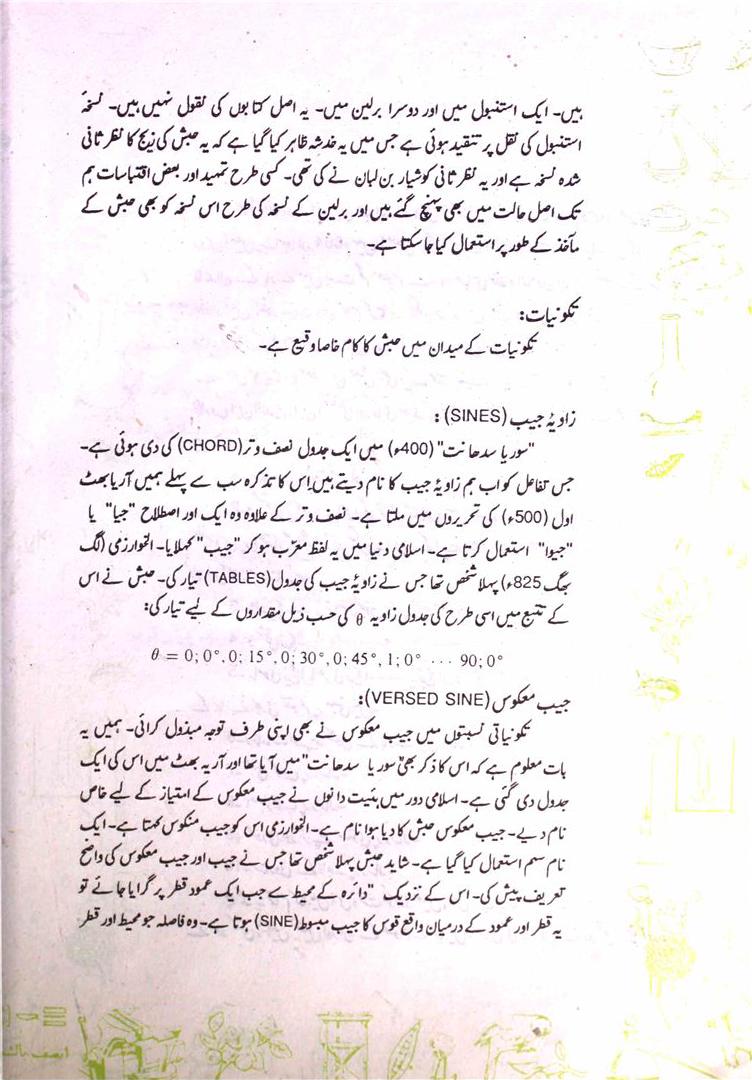 ہیں۔ ایک استنبول میں اور دوسرا برلین میں۔ یہ اصل کتابوں کی نقول نہیں ہیں۔ نسخۂ
استنبول کی نقل پر تنقید ہوئی ہے جس میں یہ خدشہ ظاہر کیا گیا ہے کہ یہ حبش کی زیج کا نظر ثانی
شدہ نسخہ ہے اور یہ نظر ثانی کوشیار بن لبان نے کی تھی۔ کسی طرح تمہید اور بعض اقتباسات ہم
تک اصل حالت میں بھی پہنچ گئے ہیں اور برلین کے نسخہ کی طرح اس نسخہ کو بھی حبش کے
مآخذ کے طور پر استعمال کیا جا سکتا ہے۔
تکونیات:
تکونیات کے میدان میں حبش کا کام خاصا وقیع ہے۔
زاویۂ جیب (SINES):
"سوریا سدھانت" (400ء) میں ایک جدول نصف وتر (CHORD) کی دی ہوئی ہے۔
جس تفاعل کو اب ہم زاویۂ جیب کا نام دیتے ہیں اس کا تذکرہ سب سے پہلے ہمیں آریا بھٹ
اول (500ء) کی تحریروں میں ملتا ہے۔ نصف وتر کے علاوہ وہ ایک اور اصطلاح "جیا" یا
"جیوا" استعمال کرتا ہے۔ اسلامی دنیا میں یہ لفظ معرّب ہو کر "جیب" کہلایا۔ الخوارزمی (لگ
بھگ 825ء) پہلا شخص تھا جس نے زاویۂ جیب کی جدول (TABLES) تیار کی۔ حبش نے اس
کے تتبع میں اسی طرح کی جدول زاویہ θ کی حسب ذیل مقداروں کے لیے تیار کی:
θ = 0; 0°, 0; 15°, 0; 30°, 0; 45°, 1; 0° ··· 90; 0°
جیب معکوس (VERSED SINE):
تکونیاتی نسبتوں میں جیب معکوس نے بھی اپنی طرف توجہ مبذول کرائی۔ ہمیں یہ
بات معلوم ہے کہ اس کا ذکر بھی "سوریا سدھانت" میں آیا تھا اور آریہ بھٹ میں اس کی ایک
جدول دی گئی ہے۔ اسلامی دور میں ہئیت دانوں نے جیب معکوس کے امتیاز کے لیے خاص
نام دیے۔ جیب معکوس حبش کا دیا ہوا نام ہے۔ الخوارزمی اس کو جیب منکوس کہتا ہے۔ ایک
نام سہم استعمال کیا گیا ہے۔ شاید حبش پہلا شخص تھا جس نے جیب اور جیب معکوس کی واضح
تعریف پیش کی۔ اس کے نزدیک "دائرہ کے محیط سے جب ایک عمود قطر پر گرایا جائے تو
یہ قطر اور عمود کے درمیان واقع قوس کا جیب مبسوط (SINE) ہوتا ہے۔ وہ فاصلہ جو محیط اور قطر